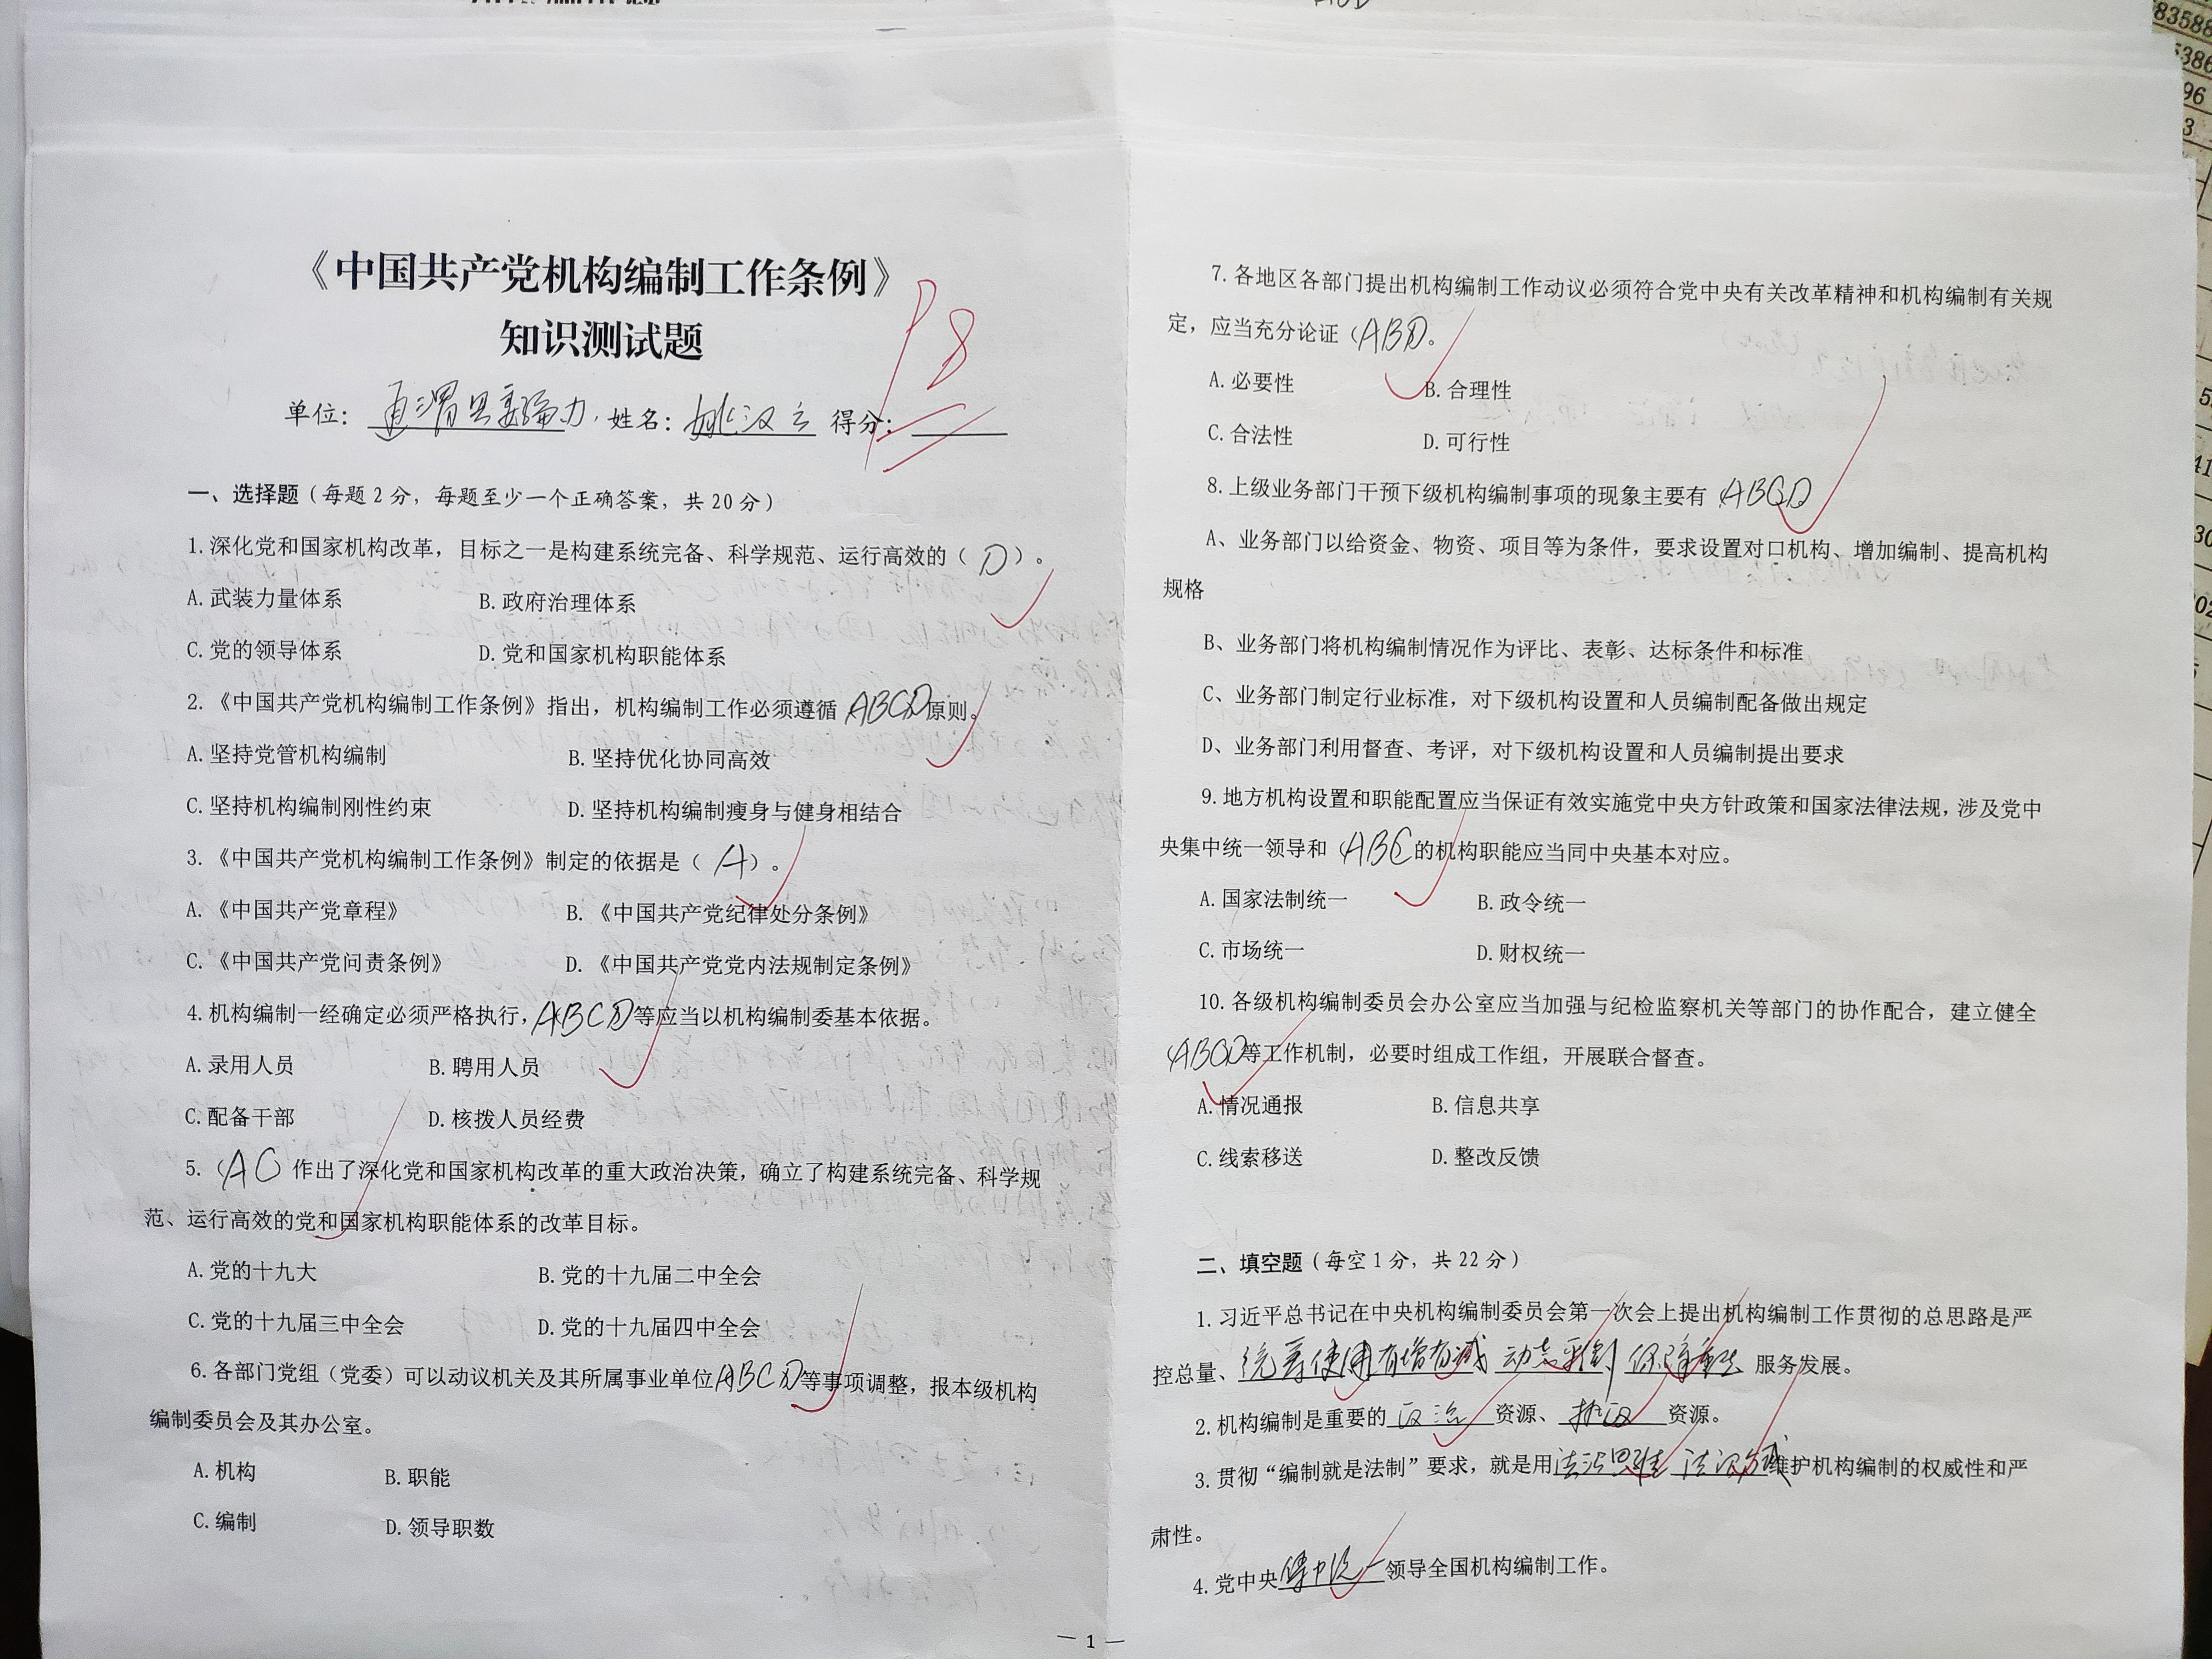 《中国共产党机构编制工作条例》
知识测试题
98
单位：通渭县委编办 姓名：姚汉立 得分：
一、选择题（每题2分，每题至少一个正确答案，共20分）
1.深化党和国家机构改革，目标之一是构建系统完备、科学规范、运行高效的（D）。
A.武装力量体系 B.政府治理体系
C.党的领导体系 D.党和国家机构职能体系
2.《中国共产党机构编制工作条例》指出，机构编制工作必须遵循ABCD原则。
A.坚持党管机构编制 B.坚持优化协同高效
C.坚持机构编制刚性约束 D.坚持机构编制瘦身与健身相结合
3.《中国共产党机构编制工作条例》制定的依据是（A）。
A.《中国共产党章程》 B.《中国共产党纪律处分条例》
C.《中国共产党问责条例》 D.《中国共产党党内法规制定条例》
4.机构编制一经确定必须严格执行，ABCD等应当以机构编制委基本依据。
A.录用人员 B.聘用人员
C.配备干部 D.核拨人员经费
5.（AC 作出了深化党和国家机构改革的重大政治决策，确立了构建系统完备、科学规
范、运行高效的党和国家机构职能体系的改革目标。
A.党的十九大 B.党的十九届二中全会
C.党的十九届三中全会 D.党的十九届四中全会
6.各部门党组（党委）可以动议机关及其所属事业单位ABCD等事项调整，报本级机构
编制委员会及其办公室。
A.机构 B.职能
C.编制 D.领导职数
7.各地区各部门提出机构编制工作动议必须符合党中央有关改革精神和机构编制有关规
定，应当充分论证（ABD。
A.必要性 B.合理性
C.合法性 D.可行性
8.上级业务部门干预下级机构编制事项的现象主要有 ABCD
A、业务部门以给资金、物资、项目等为条件，要求设置对口机构、增加编制、提高机构
规格
B、业务部门将机构编制情况作为评比、表彰、达标条件和标准
C、业务部门制定行业标准，对下级机构设置和人员编制配备做出规定
D、业务部门利用督查、考评，对下级机构设置和人员编制提出要求
9.地方机构设置和职能配置应当保证有效实施党中央方针政策和国家法律法规，涉及党中
央集中统一领导和（ABC的机构职能应当同中央基本对应。
A.国家法制统一 B.政令统一
C.市场统一 D.财权统一
10.各级机构编制委员会办公室应当加强与纪检监察机关等部门的协作配合，建立健全
ABCD等工作机制，必要时组成工作组，开展联合督查。
A.情况通报 B.信息共享
C.线索移送 D.整改反馈
二、填空题（每空1分，共22分）
1.习近平总书记在中央机构编制委员会第一次会上提出机构编制工作贯彻的总思路是严
控总量、统筹使用 有增有减 动态平衡 保障重点 服务发展。
2.机构编制是重要的 政治 资源、 执政 资源。
3.贯彻“编制就是法制”要求，就是用法治思维 法治方式维护机构编制的权威性和严
肃性。
4.党中央集中统一领导全国机构编制工作。
— 1 —